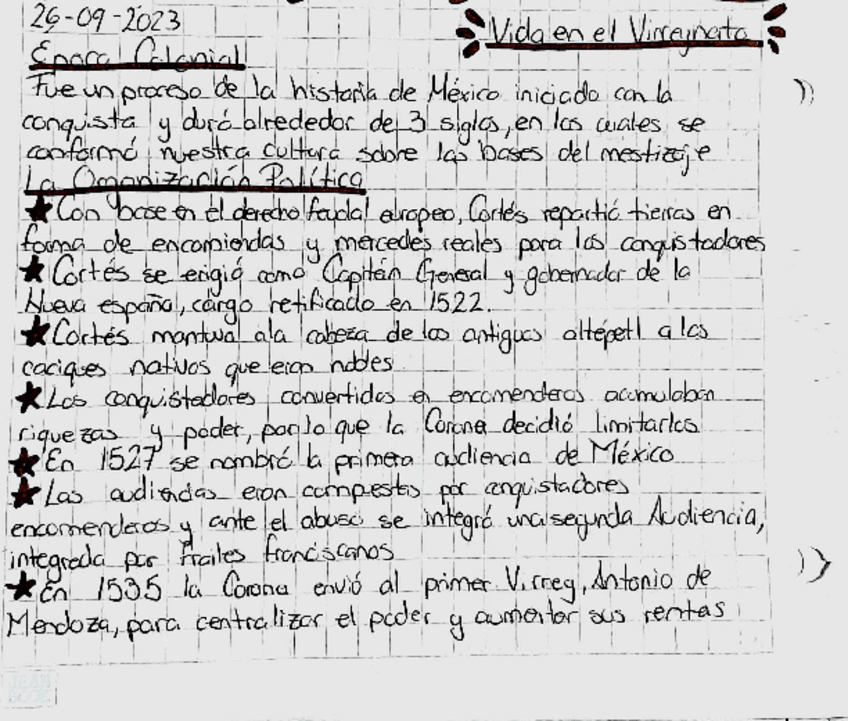 26-09-2023
Vida en el Virreynato
Epoca Colonial
Fue un proceso de la historia de México iniciado con la
conquista y duró alrededor de 3 siglos, en los cuales se
conformó nuestra cultura sobre las bases del mestizaje
La Organización Política
★Con base en el derecho feudal europeo, Cortés repartió tierras en
forma de encomiendas y mercedes reales para los conquistadores
★Cortés se erigió como Capitán General y gobernador de la
Nueva españa, cargo retificado en 1522.
★Cortés mantuvo ala cabeza de los antiguos altépetl a los
caciques nativos que eran nobles
★Los conquistadores convertidos en encomenderos acumulaban
riquezas y poder, por lo que la Corona decidió limitarlos
★En 1527 se nombró la primera audiencia de México
★Las audiencias eran compuestas por conquistadores
encomenderos y ante el abuso se integró una segunda Audiencia,
integrada por Frailes franciscanos
★En 1535 la Corona envió al primer Virrey, Antonio de
Mendoza, para centralizar el poder y aumentar sus rentas
JEAN
BOOK